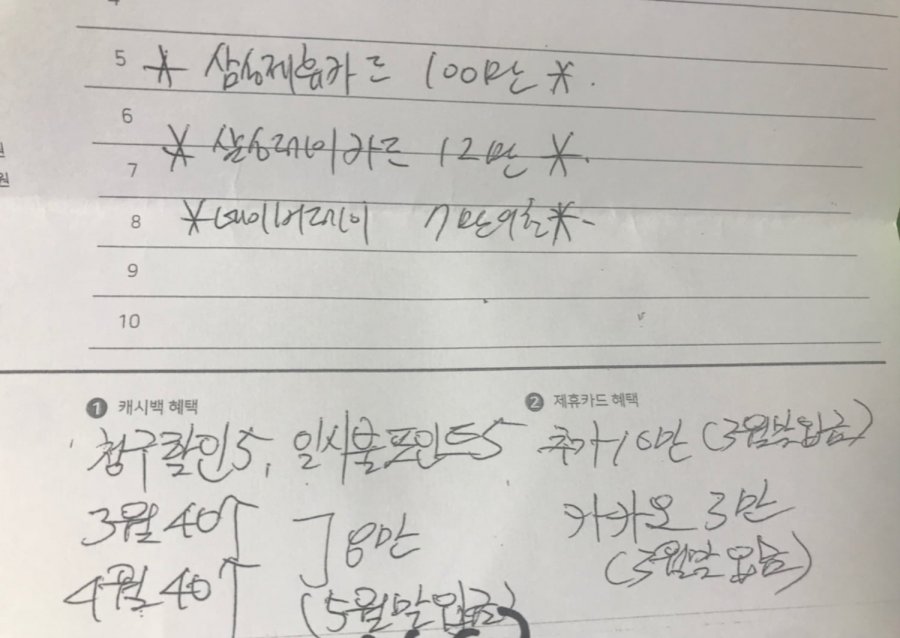 5 * 삼성제휴카드 100만 *.
6
* 삼성페이카드 12만 *.
7
8 * 네이버페이 7만
9
10
❶ 캐시백 혜택
❷ 제휴카드 혜택
청구할인5, 일시불포인트5
추가10만 (3월말입금)
3월 40↑
4월 40↑
8만
(5월말입금)
카카오 3만
(3월말 입금)